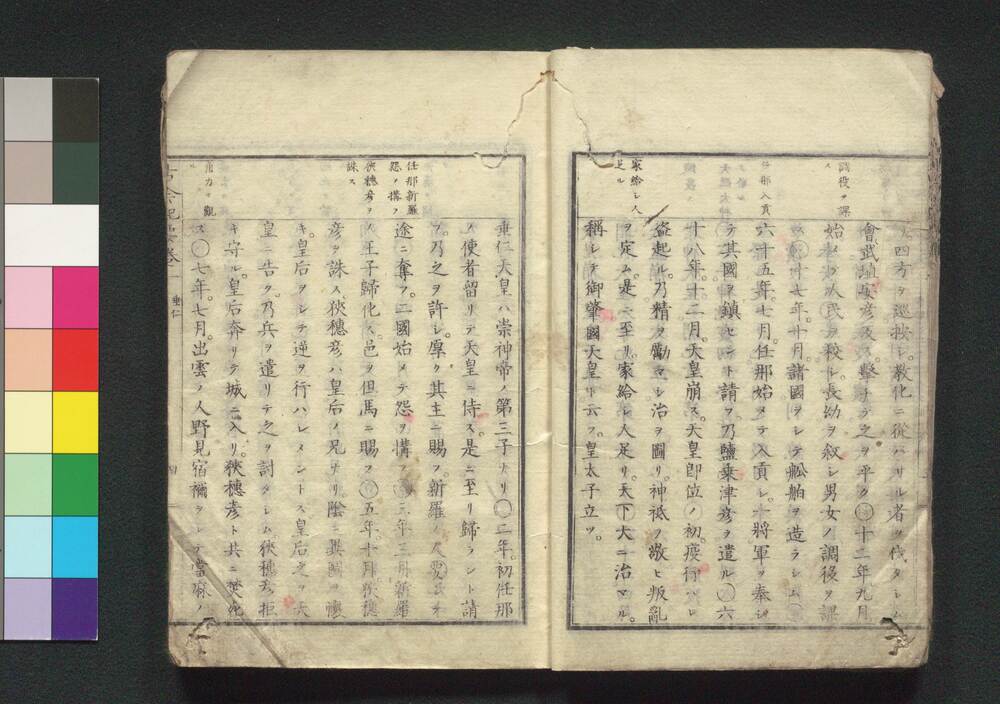 調役ヲ課
ス
任那入貢
家給シ人
足ル
四方ヲ巡按シ教化ニ從ハサル者ヲ伐タシム
會武埴安彦反ス撃チテ之ヲ平ク〇十二年九月
始メテ人民ヲ校シ長幼ヲ叙シ男女ノ調役ヲ課
ス〇十七年十月諸國ヲシテ舩舶ヲ造ラシム〇
六十五年七月任那始メテ入貢シ將軍ヲ奉シ
テ其國ヲ鎮センヿ請フ乃鹽乗津彦ヲ遣ル〇六
十八年十二月天皇崩ス天皇即位ノ初疫行ハレ
盗起ル乃精ヲ勵マシ治ヲ圖リ神祇ヲ敬ヒ叛亂
ヲ定ム是ニ至リ家給シ人足リ天下大ニ治マル
稱シテ御肇國天皇ト云フ皇太子立ツ
任那新羅
怨ヲ搆フ
狹穗彦ヲ
誅ス
角力ヲ觀
ル
垂仁天皇ハ崇神帝ノ第三子ナリ〇二年初任那
ノ使者留リテ天皇ニ侍ス是ニ至リ歸ラント請
フ乃之ヲ許シ厚ク其主ニ賜フ新羅ノ人要シテ
途ニ奪フ二國始メテ怨ヲ搆フ〇三年三月新羅
ノ王子歸化ス邑ヲ但馬ニ賜フ〇五年十月狹穗
彦ヲ誅ス狹穗彦ハ皇后ノ兄ナリ陰ニ異圖ヲ懷
キ皇后ヲシテ逆ヲ行ハシメントス皇后之ヲ天
皇ニ告ク乃兵ヲ遣リテ之ヲ討タシム狹穗彦拒
キ守ル皇后奔リテ城ニ入リ狹穗彦ト共ニ焚死
ス〇七年七月出雲ノ人野見宿禰ヲシテ當麻ノ
垂仁
四